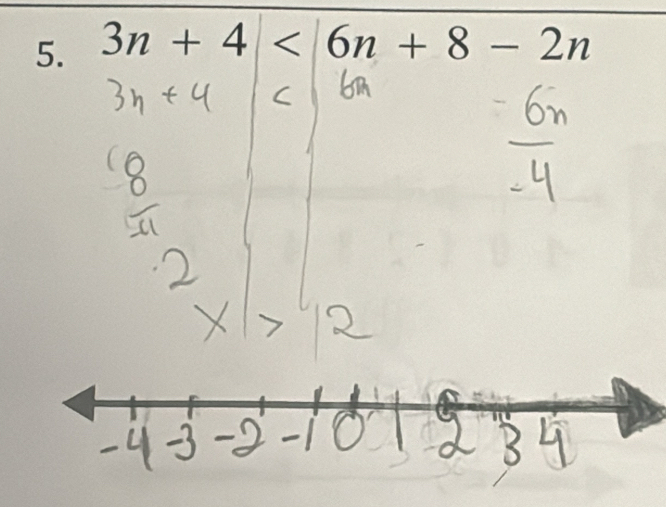 5. 3n + 4 < 6n + 8 - 2n
3n + 4 < 6n
- 6n
8
-4
2
x > 2
-4 -3 -2 -1 0 1 2 3 4